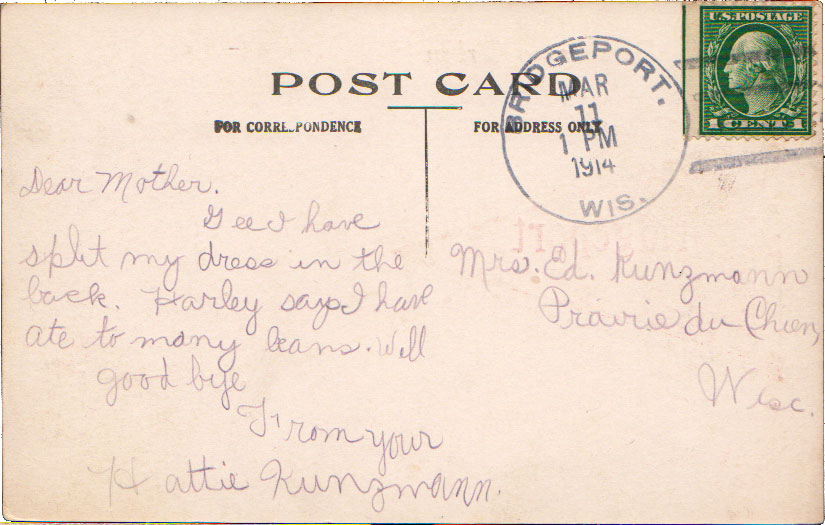 POST CARD
FOR CORRESPONDENCE
FOR ADDRESS ONLY
BRIDGEPORT.
MAR
11
1 PM
1914
WIS.
U.S. POSTAGE
1 CENT 1
Dear Mother.
Gee I have
split my dress in the
back. Harley says I have
ate to many beans. Will
good bye
From your
Hattie Kunzmann.
Mrs. Ed. Kunzmann
Prairie du Chien,
Wisc.